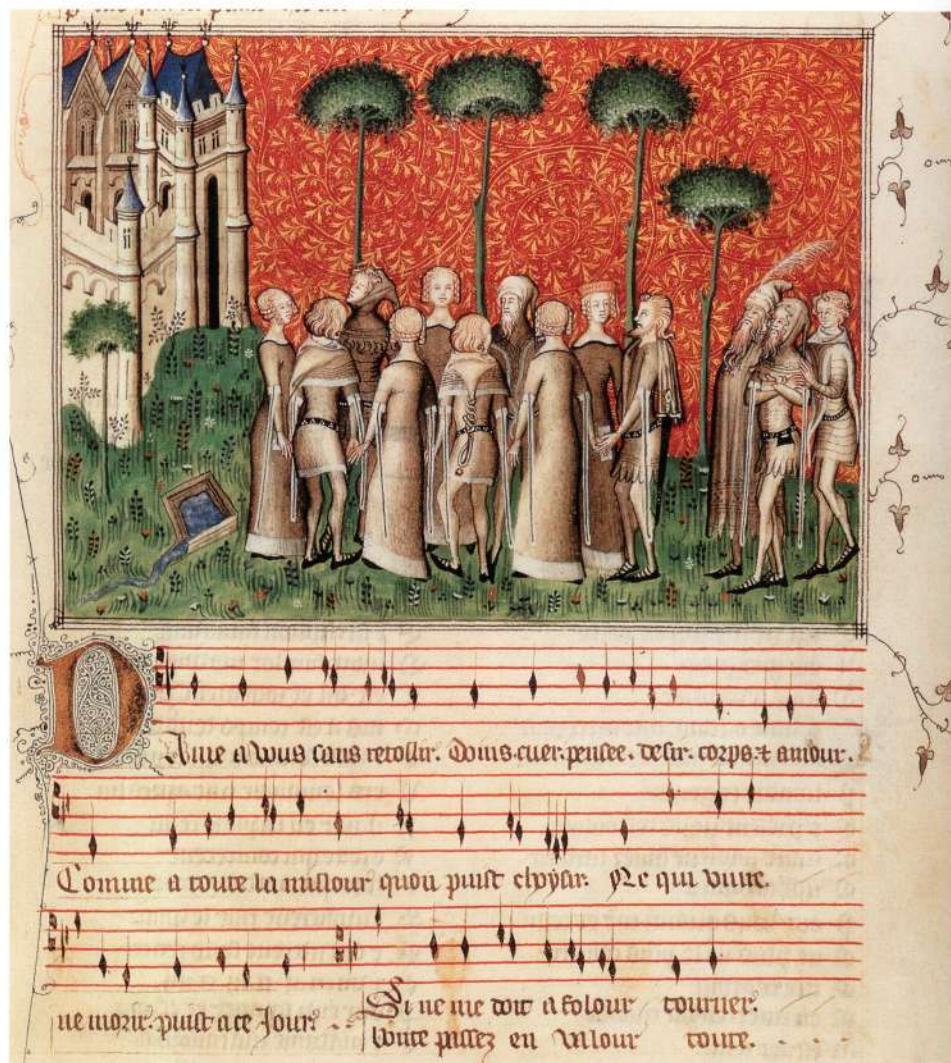 Dame a vous sans retollir. Doins. cuer. pensee. desir. corps. ⁊ amour.
Comme a toute la millour quon puist choysir. Ne qui viure.
ne morir. puist a ce Jour.
Si ne me doit a folour tourner.
bonte passez en valour toute.